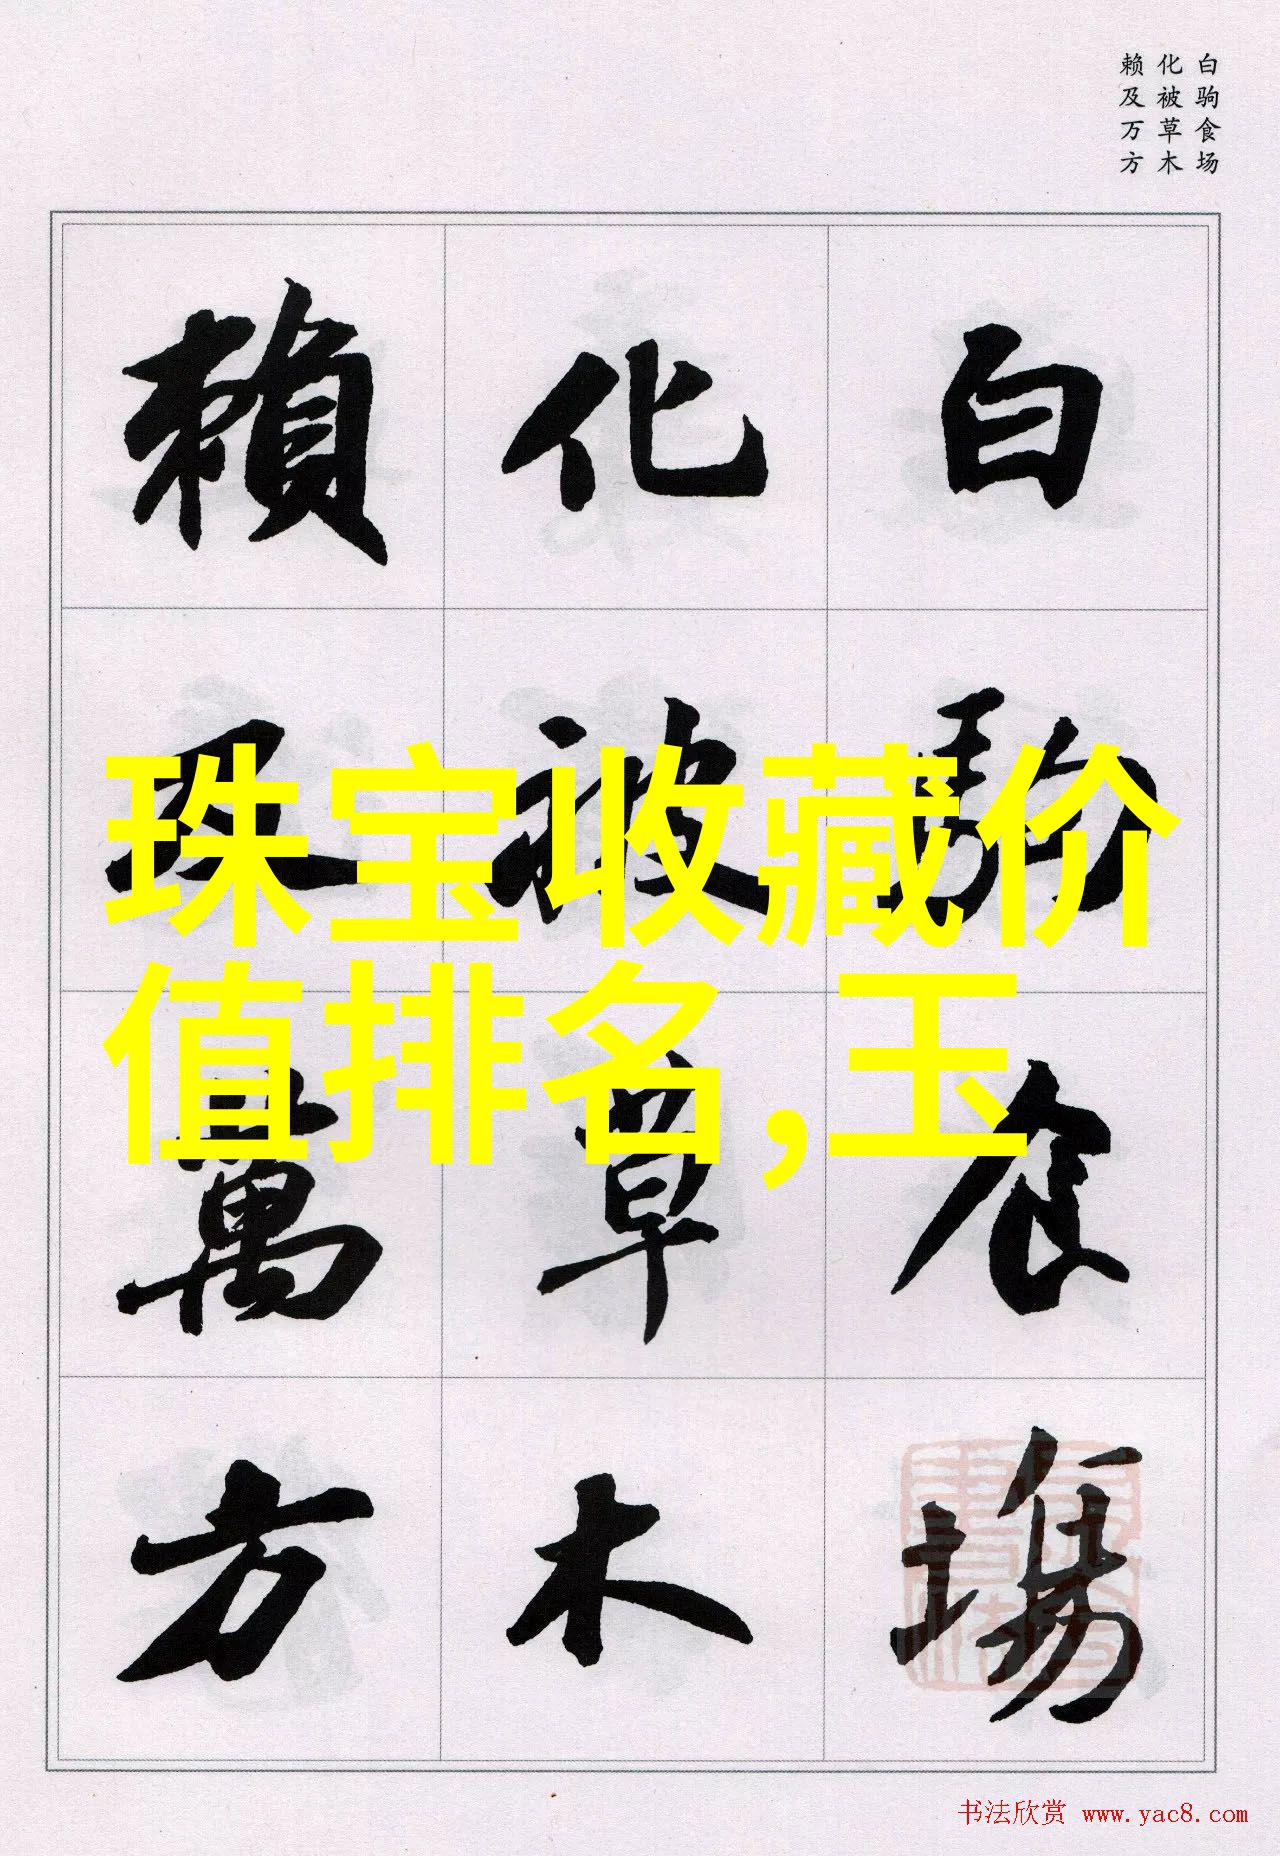 白驹食场
化被草木
赖及万方
白駒食場
化被草木
賴及萬方
珠宝收藏价
值排名,玉
书法欣赏 www.yac8.com